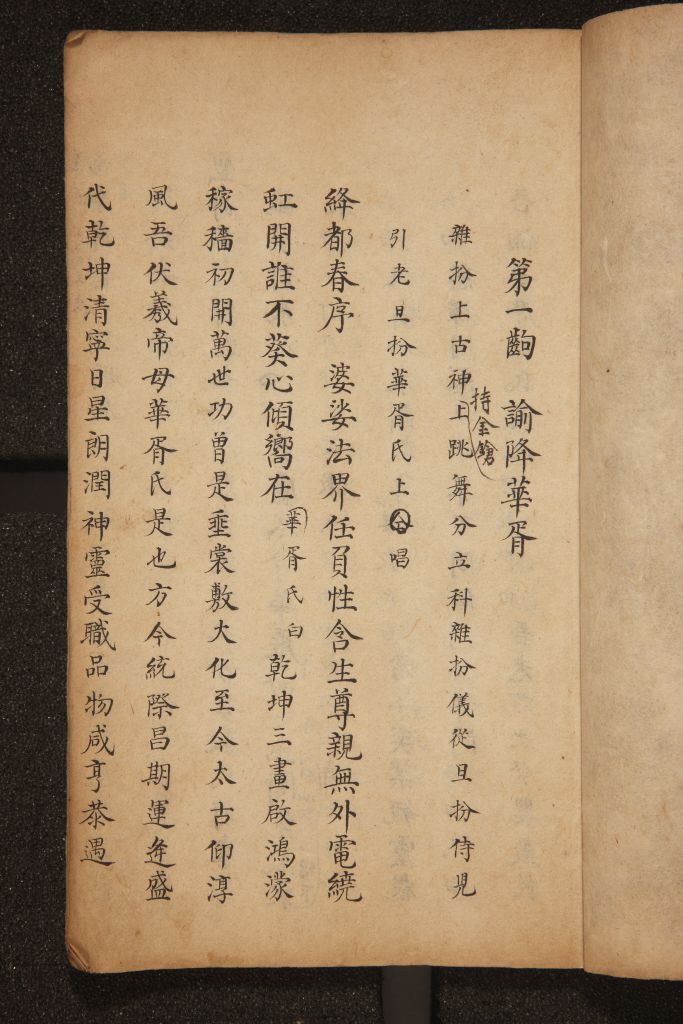 第一齣　諭降華胥
雜扮上古神上持金鎗跳舞分立科雜扮儀從旦扮侍兒
引老旦扮華胥氏上仝唱
絳都春序　婆娑法界任負性含生尊親無外電繞
虹開誰不葵心傾嚮在華胥氏白乾坤三畫啟鴻濛
稼穡初開萬世功曾是垂裳敷大化至今太古仰淳
風吾伏羲帝母華胥氏是也方今統際昌期運逢盛
代乾坤清寧日星朗潤神靈受職品物咸亨恭遇